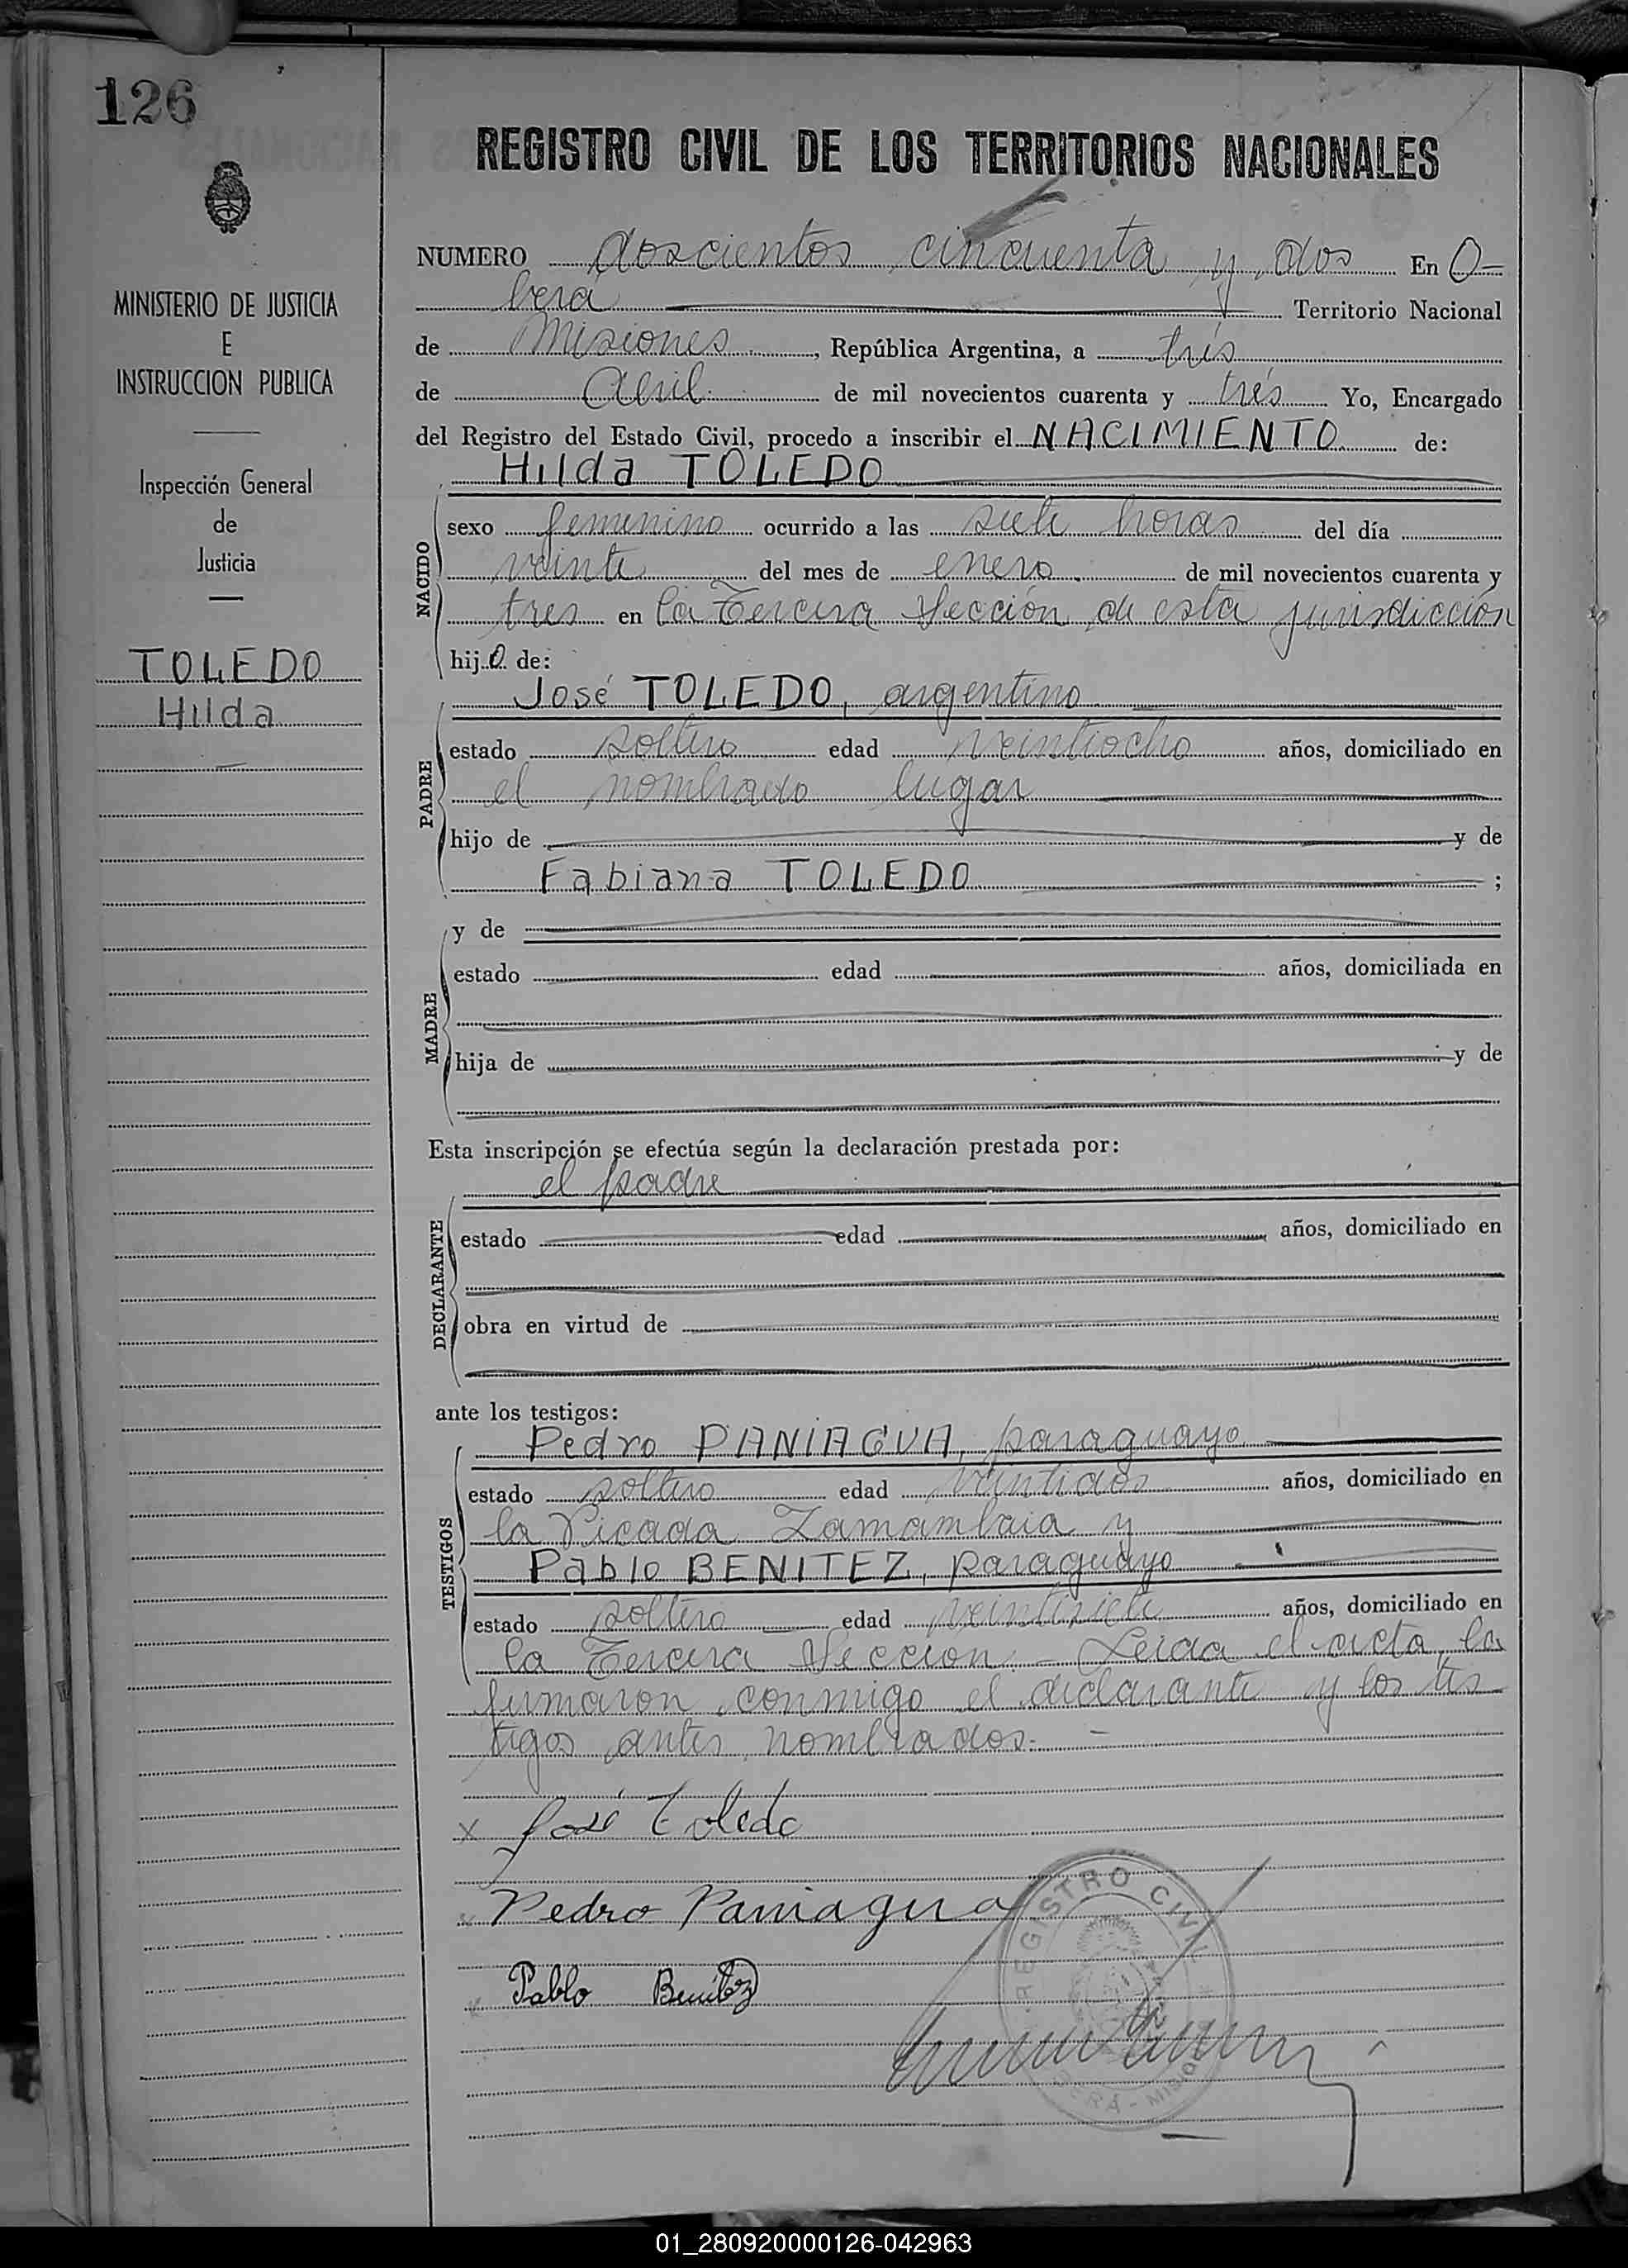 126
MINISTERIO DE JUSTICIA
E
INSTRUCCION PUBLICA
Inspección General
de
Justicia
TOLEDO
Hilda
REGISTRO CIVIL DE LOS TERRITORIOS NACIONALES
NUMERO doscientos cincuenta y dos En O-
berá Territorio Nacional
de Misiones, República Argentina, a trés
de Abril de mil novecientos cuarenta y trés Yo, Encargado
del Registro del Estado Civil, procedo a inscribir el NACIMIENTO de:
Hilda TOLEDO
NACIDO
sexo femenino ocurrido a las siete horas del día
veinte del mes de enero de mil novecientos cuarenta y
tres en la Tercera Sección de esta jurisdicción
hija de:
José TOLEDO, argentino
PADRE
estado soltero edad veintiocho años, domiciliado en
el nombrado lugar
hijo de y de
Fabiana TOLEDO ;
MADRE
y de
estado edad años, domiciliada en
hija de y de
Esta inscripción se efectúa según la declaración prestada por:
el padre
DECLARANTE
estado edad años, domiciliado en
obra en virtud de
ante los testigos:
TESTIGOS
Pedro PANIAGUA, paraguayo
estado soltero edad veintidos años, domiciliado en
la Picada Zamambaia y
Pablo BENITEZ, paraguayo
estado soltero edad veintisiete años, domiciliado en
la Tercera Sección.- Leida el acta, la
firmaron conmigo el declarante y los tes-
tigos antes nombrados.-
x José Toledo
Pedro Paniagua
Pablo Benítez
REGISTRO CIVIL
OBERÁ - MISIONES
01_280920000126-042963